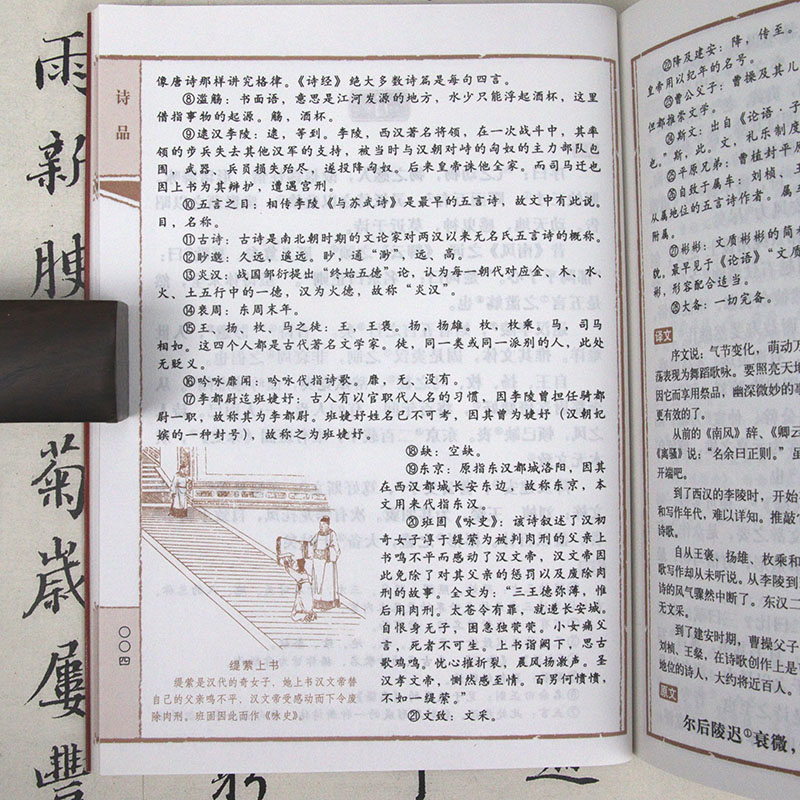 雨
新
腴
菊
歲
屢
豐
诗品
像唐诗那样讲究格律。《诗经》绝大多数诗篇是每句四言。
⑧滥觞：书面语，意思是江河发源的地方，水少只能浮起酒杯，这里
借指事物的起源。觞，酒杯。
⑨逮汉李陵：逮，等到。李陵，西汉著名将领，在一次战斗中，其率
领的步兵失去其他汉军的支持，被当时与汉朝对峙的匈奴的主力部队包
围，武器、兵员损失殆尽，遂投降匈奴，后来皇帝诛他全家，而司马迁也
因上书为其辩护，遭遇宫刑。
⑩五言之目：相传李陵《与苏武诗》是最早的五言诗，故文中有此说。
目，名称。
⑪古诗：古诗是南北朝时期的文论家对两汉以来无名氏五言诗的概称。
⑫眇邈：久远，遥远。眇，通“渺”，远，高。
⑬炎汉：战国邹衍提出“终始五德”论，认为每一朝代对应金、木、水、
火、土五行中的一德，汉为火德，故称“炎汉”。
⑭衰周：东周末年。
⑮王、扬、枚、马之徒：王，王褒，扬，扬雄，枚，枚乘，马，司马
相如。这四个人都是古代著名文学家，徒，同一类或同一派别的人，此处
无贬义。
⑯吟咏靡闻：吟咏代指诗歌。靡，无，没有。
⑰李都尉迄班婕妤：古人有以官职代人名的习惯，因李陵曾担任骑都
尉一职，故称其为李都尉。班婕妤姓名已不可考，因其曾为婕妤（汉朝妃
嫔的一种封号），故称之为班婕妤。
⑱缺：空缺。
⑲东京：原指东汉都城洛阳，因其
在西汉都城长安东边，故称东京，本
文用来代指东汉。
⑳班固《咏史》：该诗叙述了汉初
奇女子淳于缇萦为被判肉刑的父亲上
书鸣不平而感动了汉文帝，汉文帝因
此免除了对其父亲的惩罚以及废除肉
刑的故事。全文为：“三王德弥薄，惟
后用肉刑。太苍令有罪，就递长安城。
自恨身无子，困急独茕茕。小女痛父
言，死者不可生。上书诣阙下，思古
歌鸡鸣。忧心摧折裂，晨风扬激声。圣
汉孝文帝，恻然感至情。百男何愦愦，
不如一缇萦。”
㉑文致：文采。
缇萦上书
缇萦是汉代的奇女子，她上书汉文帝替
自己的父亲鸣不平，汉文帝受感动而下令废
除肉刑，班固因此而作《咏史》。
〇〇四
㉒降及建安：降，传至。
皇帝用以纪年的名号。
㉓曹公父子：曹操及其儿
但都推崇文学。
㉔斯文：出自《论语·子
也。”斯，此。文，礼乐制度
㉕平原兄弟：曹植封平原
㉖自致于属车：刘桢、王
从属地位的五言诗作者。属
附属。
㉗彬彬：文质彬彬的简
貌，最早见于《论语》“文质
彬，形容配合适当。
㉘大备：一切完备。
译文
序文说：气节变化，萌动万
荡表现为舞蹈歌咏。要照亮天地
因它而享用祭品，幽深微妙的
更有效的了。
从前的《南风》辞、《卿云
《离骚》说：“名余曰正则。”虽
开端吧。
到了西汉的李陵时，开始
和写作年代，难以详知。推敲
诗歌。
自从王褒、扬雄、枚乘和
歌写作却从未听说。从李陵到
诗的风气骤然中断了。东汉二
无文采。
到了建安时期，曹操父子
刘桢、王粲，在诗歌创作上是
地位的诗人，大约将近百人。
原文
尔后陵迟①衰微，